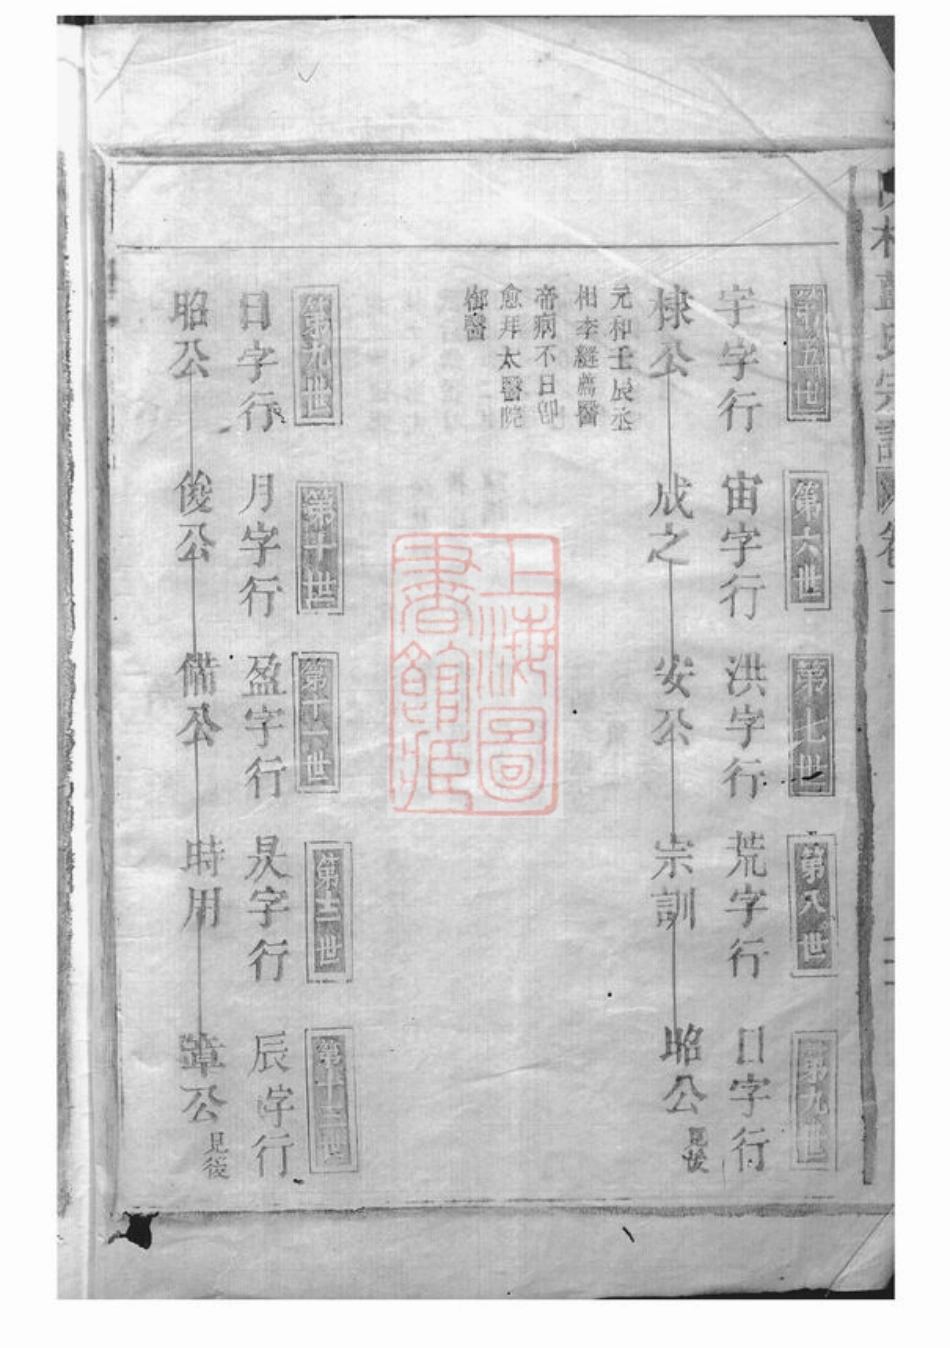 第五世
第六世
第七世
第八世
第九世
宇字行
宙字行
洪字行
荒字行
日字行
棣公
成之
安公
宗訓
昭公 見後
元和壬辰丞
相李縫薦醫
帝病不日卽
愈拜太醫院
御醫
第九世
第十世
第十一世
第十二世
第十三世
日字行
月字行
盈字行
昃字行
辰字行
昭公
俊公
備公
時用
章公 見後
上海圖
書館藏